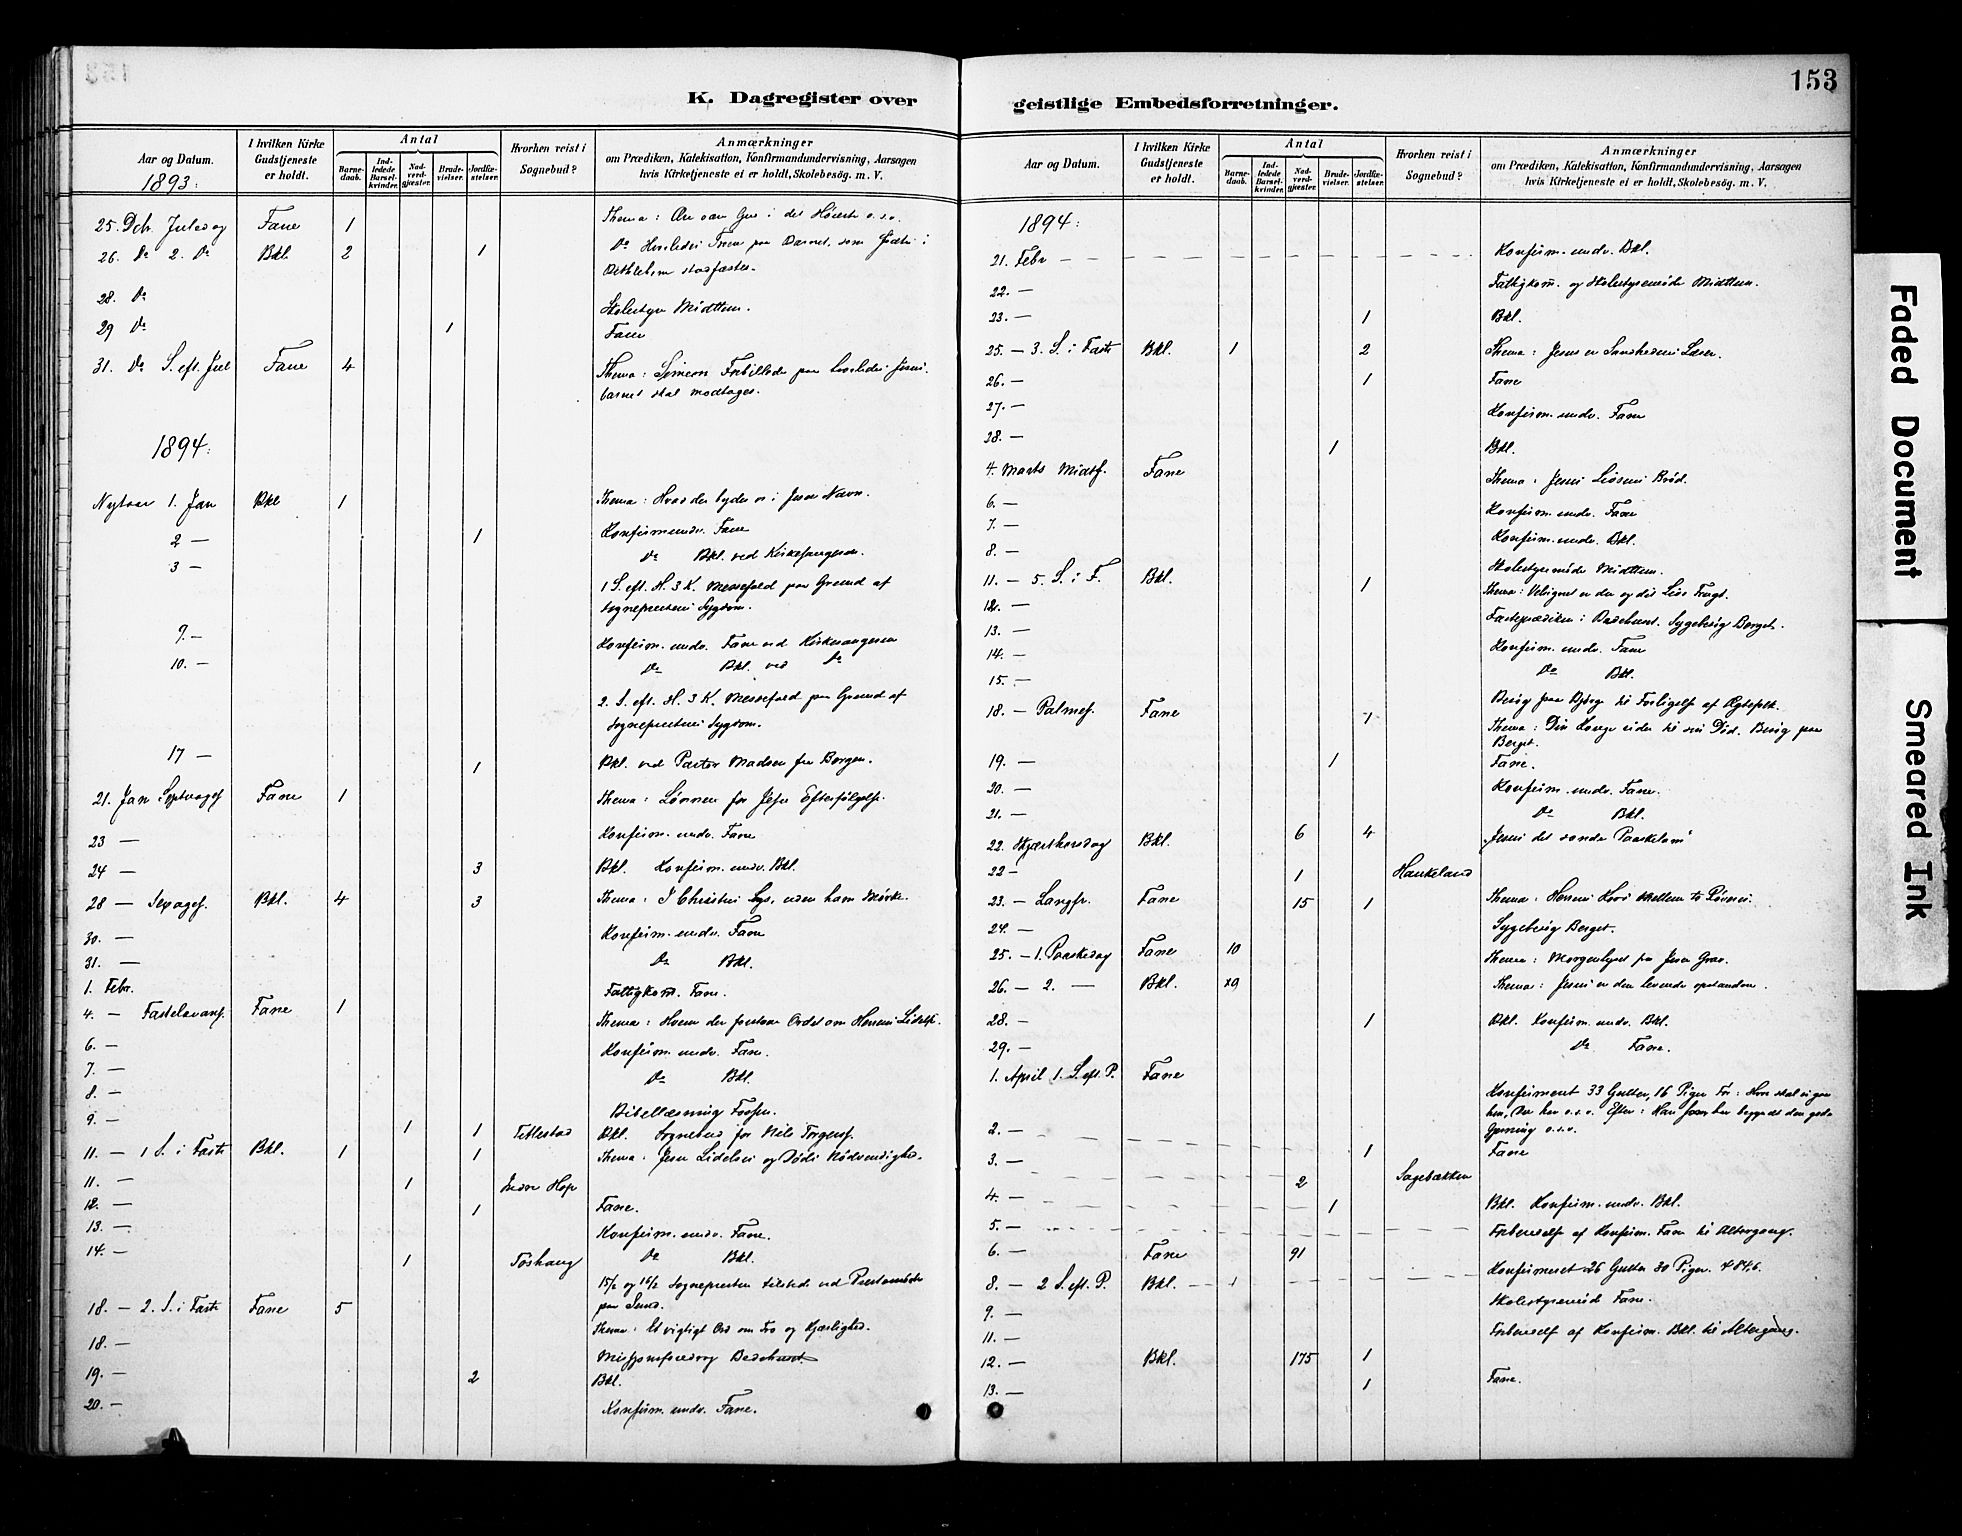 153
K. Dagregister over
geistlige Embedsforretninger.
Aar og Datum.
1893:
I hvilken Kirke Gudstjeneste er holdt.
Antal
Barnedaab.
Indledede Barselkvinder.
Nadverdgjæster.
Brudevielser.
Jordfæstelser.
Hvorhen reist i Sognebud?
Anmærkninger
om Prædiken, Katekisation, Konfirmandundervisning, Aarsagen
hvis Kirketjeneste ei er holdt, Skolebesøg. m. V.
25. Dcbr. Juledag Fane 1 Thema: Ære være Gud i det Høieste o.s.v.
26. Do 2. Do Bkl. 2 1 Do Hvorledes Troen paa Barnet, som fødtes i
Bethlehem stadfæstes.
28. Do Skolestyre Midttun.
29 Do 1 Fane
31. Do S. eft. Jul Fane 4 Thema: Simeon Forbillede paa hvorledes Jesusbarnet skal modtages.
1894:
Nytaar 1. Jan Bkl 1 Thema: Hvad der bydes os i Jesu Navn.
2 — 1 Konfirm. undv. Fane
3 — Do Bkl. ved Kirkesangeren.
1 S. eft. H. 3 K. Messefald paa Grund af
Sognepræstens Sygdom.
9. — Konfirm. undv. Fane ved Kirkesangeren
10. — Do Bkl. ved Do
2. S. eft. H. 3 K. Messefald paa Grund af
Sognepræstens Sygdom.
17 — 1 Bkl. ved Pastor Madsen fra Bergen.
21. Jan Septuages Fane 1 Thema: Lønnen for Jesu Efterfølgelse.
23 — Konfirm. undv. Fane
24 — 3 Bkl. Konfirm. undv. Bkl.
28 — Sexages. Bkl. 4 3 Thema: I Christus Lys, uden ham Mørke.
30. — Konfirm. undv. Fane
31. — Do Bkl.
1. Febr. Fattigkom. Fane.
4. — Fastelavns. Fane 1 Thema: Hvem der forstaar Ordet om Herrens Lidelse.
6. — Konfirm. undv. Fane.
7. — Do Bkl.
8. — Bibellæsning
9. — 1 1 Titlestad Bkl. Sognebud for Nils Torgers.
11. — 1 S. i Faste Bkl. 1 1 Thema: Jesu Lidelses og Døds Nødvendighed.
11. — 1 Hop
12. — 1 Fane.
13. — Konfirm. undv. Fane.
14. — 1 Do Bkl.
15/2 og 16/2 Sognepræsten tilstede ved
paa
18. — 2. S. i Faste Fane 5 Thema: Et vigtigt Ord om Tro og Kjærlighed.
18. — Missionsforedrag Bedehuset
19. — 2 Bkl.
20. — Konfirm. undv. Fane.
Aar og Datum.
I hvilken Kirke Gudstjeneste er holdt.
Antal
Barnedaab.
Indledede Barselkvinder.
Nadverdgjæster.
Brudevielser.
Jordfæstelser.
Hvorhen reist i Sognebud?
Anmærkninger
om Prædiken, Katekisation, Konfirmandundervisning, Aarsagen
hvis Kirketjeneste ei er holdt, Skolebesøg. m. V.
1894:
21. Febr Konfirm. undv. Bkl.
22. — Fattigkom. og Skolestyremøde Midttun.
23. — 1 Bkl.
25. — 3. S. i Faste Bkl. 1 2 Thema: Jesus er Sandhedens Lærer.
26. — 1 Fane
27. — Konfirm. undv. Fane
28. — 1 Bkl.
4. Marts Midtf. Fane Thema: Jesus Livsens Brød.
6. — Konfirm. undv. Fane
7. — Konfirm. undv. Bkl.
8. — Skolestyremøde Midttun.
11. — 5. S. i F. Bkl. 1 Thema: Velsignet er den og dit Livs Frugt.
12. — Fasteprædiken i Bedehuset. Sygebesøg Berget.
13. — Konfirm. undv. Fane
14. — Do Bkl.
15. — Besøg paa til Forligelse af Ægtefolk.
18. — Palmes. Fane 1 Thema: Din Konge rider til sin Død. Besøg paa
Berget.
19. — 1 Fane.
20. — Konfirm. undv. Fane.
21. — Do Bkl.
22. Skjærthorsdag Bkl. 6 4 Jesus det sande Paaskelam
22 — 1 Haukeland
23. — Langfr. Fane 15 1 Thema: Herrens Kors mellem to Røvere.
24. — Sygebesøg Berget.
25. — 1. Paaskedag Fane 10 Thema: Morgenlyset fra Jesu Grav.
26. — 2. — Bkl. 9 Thema: Jesus er den levende opstandne.
28. — 1 Bkl. Konfirm. undv. Bkl.
29. — Do Fane.
1. April 1. S. eft. P. Fane Konfirmeret 33 Gutter, 16 Piger Før: Hvor skal vi gaa
hen, Du har o.s.v. Efter: Han som har begyndt den gode
Gjerning o.s.v.
2. —
3. — 1 Fane
4. — 2 Sagebakken
5. — 1 Bkl. Konfirm. undv. Bkl.
Forberedelse af Konfirm. Fane til Altergang.
6. — Fane 91
8. — 2 S. eft. P. Bkl. 1 Konfirmeret 26 Gutter 30 Piger.
9. — Skolestyremøde Fane.
11. — Forberedelse af Konfirm. Bkl. til Altergang.
12. — Bkl. 175 1
13. — 1 Fane.
Faded Document
Smeared Ink